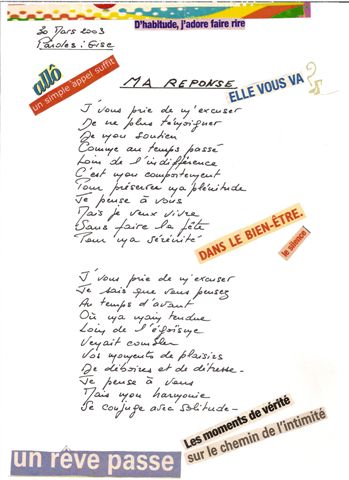 D'habitude, j'adore faire rire
30 Mars 2003
Paroles : Erse
allô
un simple appel suffit
MA REPONSE
ELLE VOUS VA ?
J'vous prie de m'excuser
De ne plus témoigner
De mon soutien
Comme au temps passé
Loin de l'indifférence
C'est mon comportement
Pour préserver ma plénitude
Je pense à vous
Mais je veux vivre
Sans faire la fête
Pour ma sérénité -
DANS LE BIEN-ÊTRE.
le silence
J'vous prie de m'excuser
Je sais que vous pensez
Au temps d'avant
Où ma main tendue
Loin de l'égoïsme
Venait combler
Vos moments de plaisirs
De déboires et de détresse -
Je pense à vous
Mais mon harmonie
Se conjugue avec solitude -
Les moments de vérité
sur le chemin de l'intimité
un rêve passe